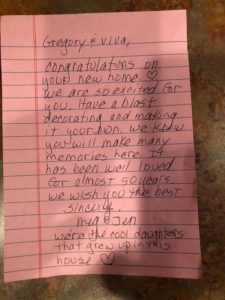 Gregory & Viva,
congratulations on
your new home. ♡
we are so excited for
you. Have a blast
decorating and making
it your own. we know
you will make many
memories here. It
has been well loved
for almost 50 years.
we wish you the best
sincerely,
Meg & Jen
we're the cool daughters
that grew up in this
house ♡